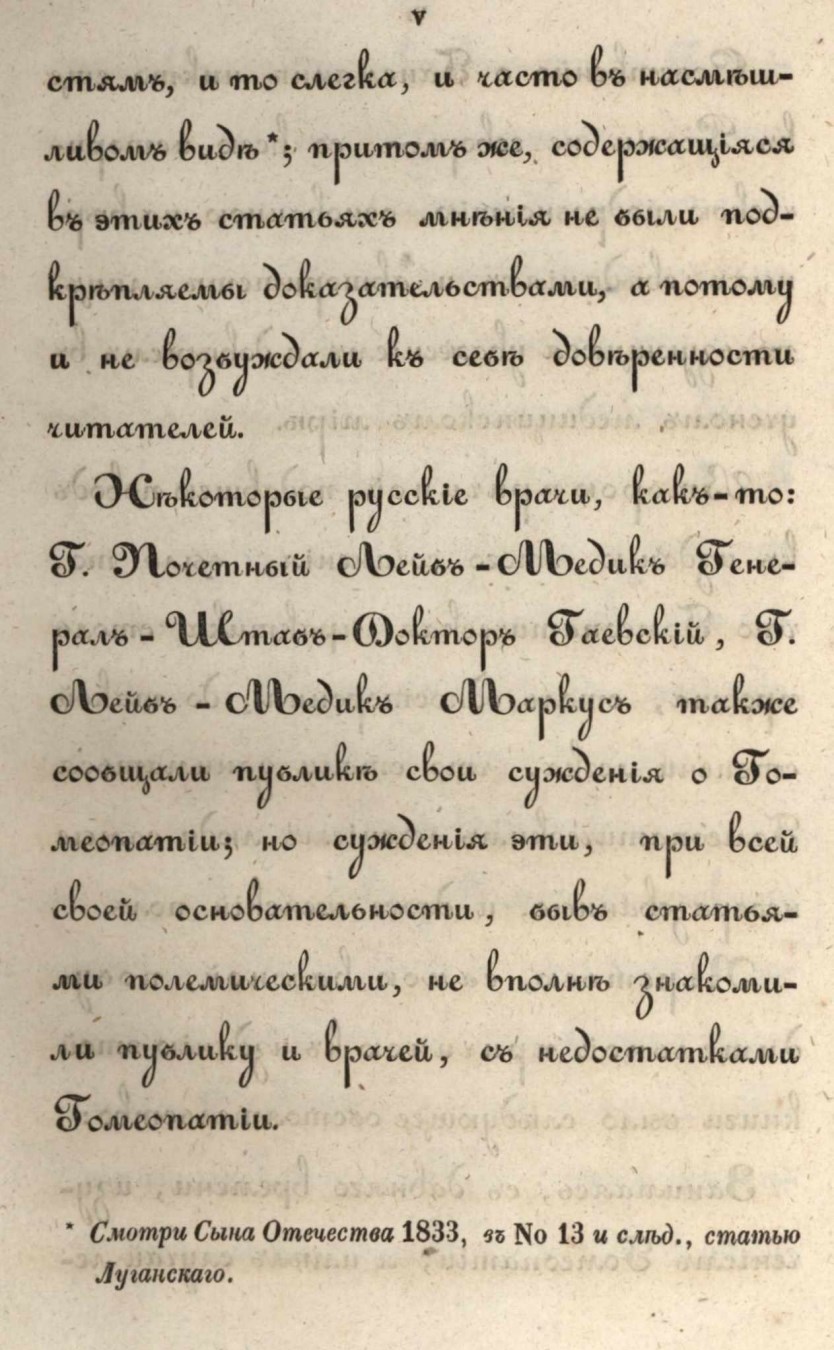 v
стямъ, и то слегка, и часто въ насмѣш-
ливомъ видѣ *; притомъ же, содержащіяся
въ этихъ статьяхъ мнѣнія не были под-
крѣпляемы доказательствами, а потому
и не возбуждали къ себѣ довѣренности
читателей.
Нѣкоторые русскіе врачи, какъ-то:
Г. Почетный Лейбъ-Медикъ Гене-
ралъ-Штабъ-Докторъ Гаевскій, Г.
Лейбъ-Медикъ Маркусъ также
сообщали публикѣ свои сужденія о Го-
меопатіи; но сужденія эти, при всей
своей основательности, бывъ статья-
ми полемическими, не вполнѣ знакоми-
ли публику и врачей, съ недостатками
Гомеопатіи.
* Смотри Сына Отечества 1833, въ No 13 и слѣд., статью
Луганскаго.